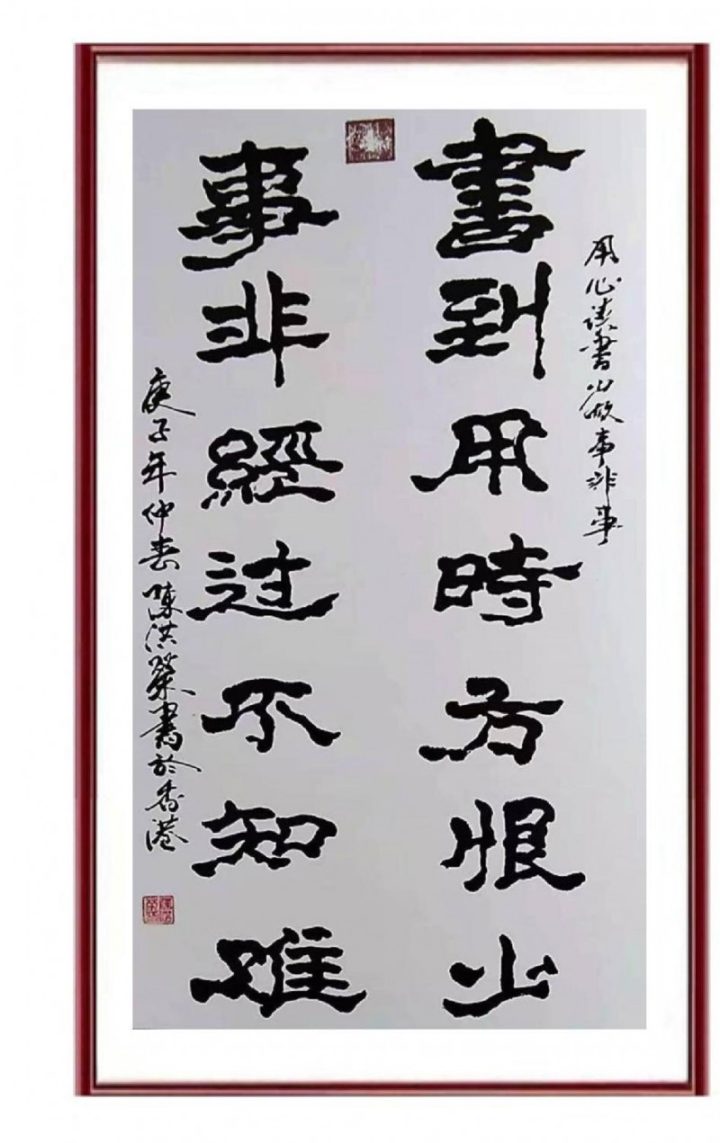 用心读書故事非事
書到用時方恨少
事非經过不知难
庚子年仲春陳洪榮書於香港